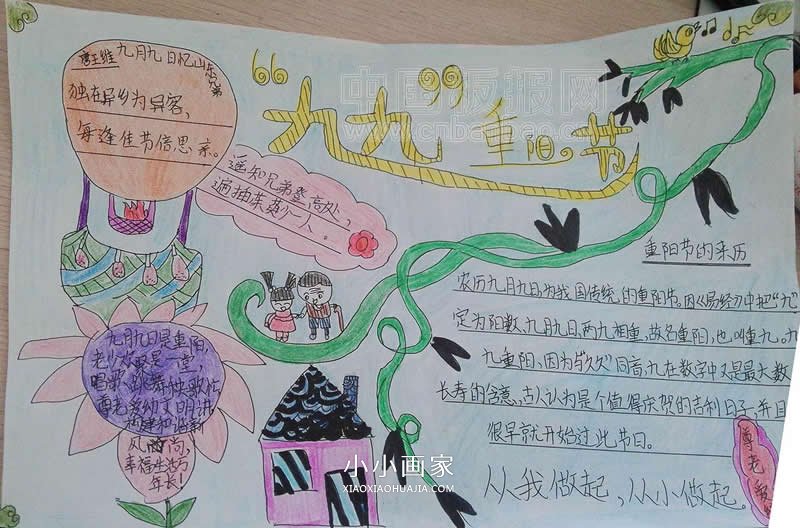 唐王维 九月九日忆山东兄弟
独在异乡为异客，
每逢佳节倍思亲。
遥知兄弟登高处，
遍插茱萸少一人。
"九九"重阳。节
中国板报网
www.cnbanbao.cn
重阳节的来历
农历九月九日为我国传统的重阳节。因《易经》中把"九"
定为阳数，九月九日，两九相重，故名重阳，也叫重九。九
九重阳，因为与"久久"同音，九在数字中又是最大数，
长寿的含意，古人认为是个值得庆贺的吉利日子，并且
很早就开始过此节日。
从我做起，从小做起。
尊老
九月九日是重阳，
老少欢聚是一堂，
唱歌
尊老爱幼文明讲，
风尚，
幸福生活万
年长！
小小画家
XIAOXIAOHUAJIA.COM